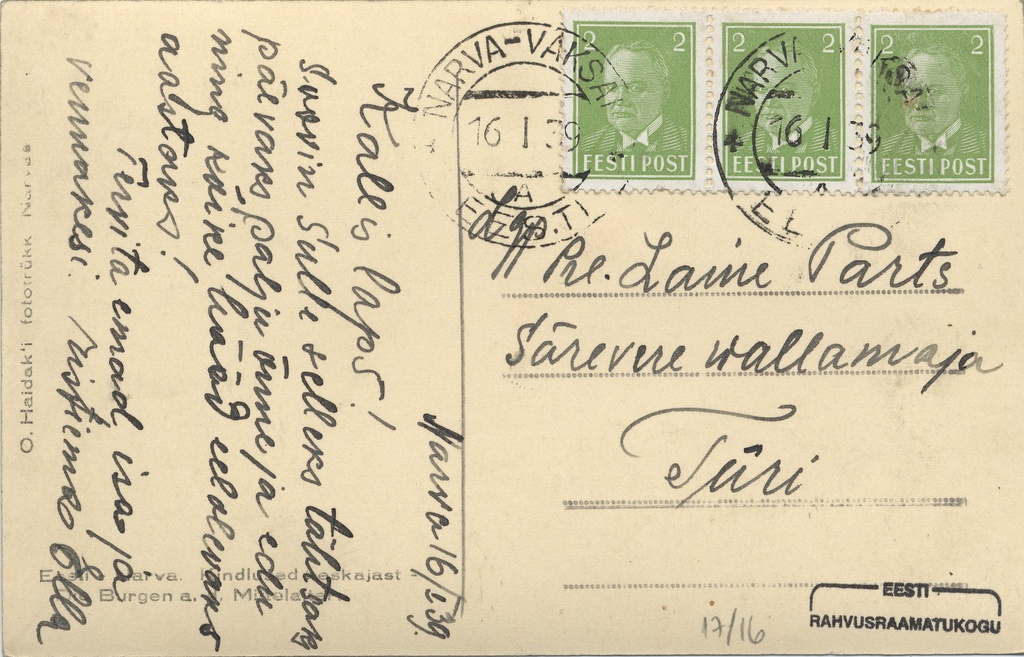 Narva 16/I 39.
Kallis laps!
Soovin Sulle selleks tähtsaks
päevaks palju õnne ja edu
ning kõike head eelolevaks
aastaks!
Tervita emad isa ja
vennakesi. ristiema Ella
O. Haidak'i fototrükk Narvas
Eesti Narva. kindlused keskajast
Burgen a. Mittelalter
NARVA-VAKSAL
16 I 39
A
EESTI
NARVA-VAKSAL
16 I 39
2 2
EESTI POST
2 2
EESTI POST
2 2
EESTI POST
Lgp.
Prl. Laine Parts
Särevere vallamaja
Türi
17/16
EESTI
RAHVUSRAAMATUKOGU